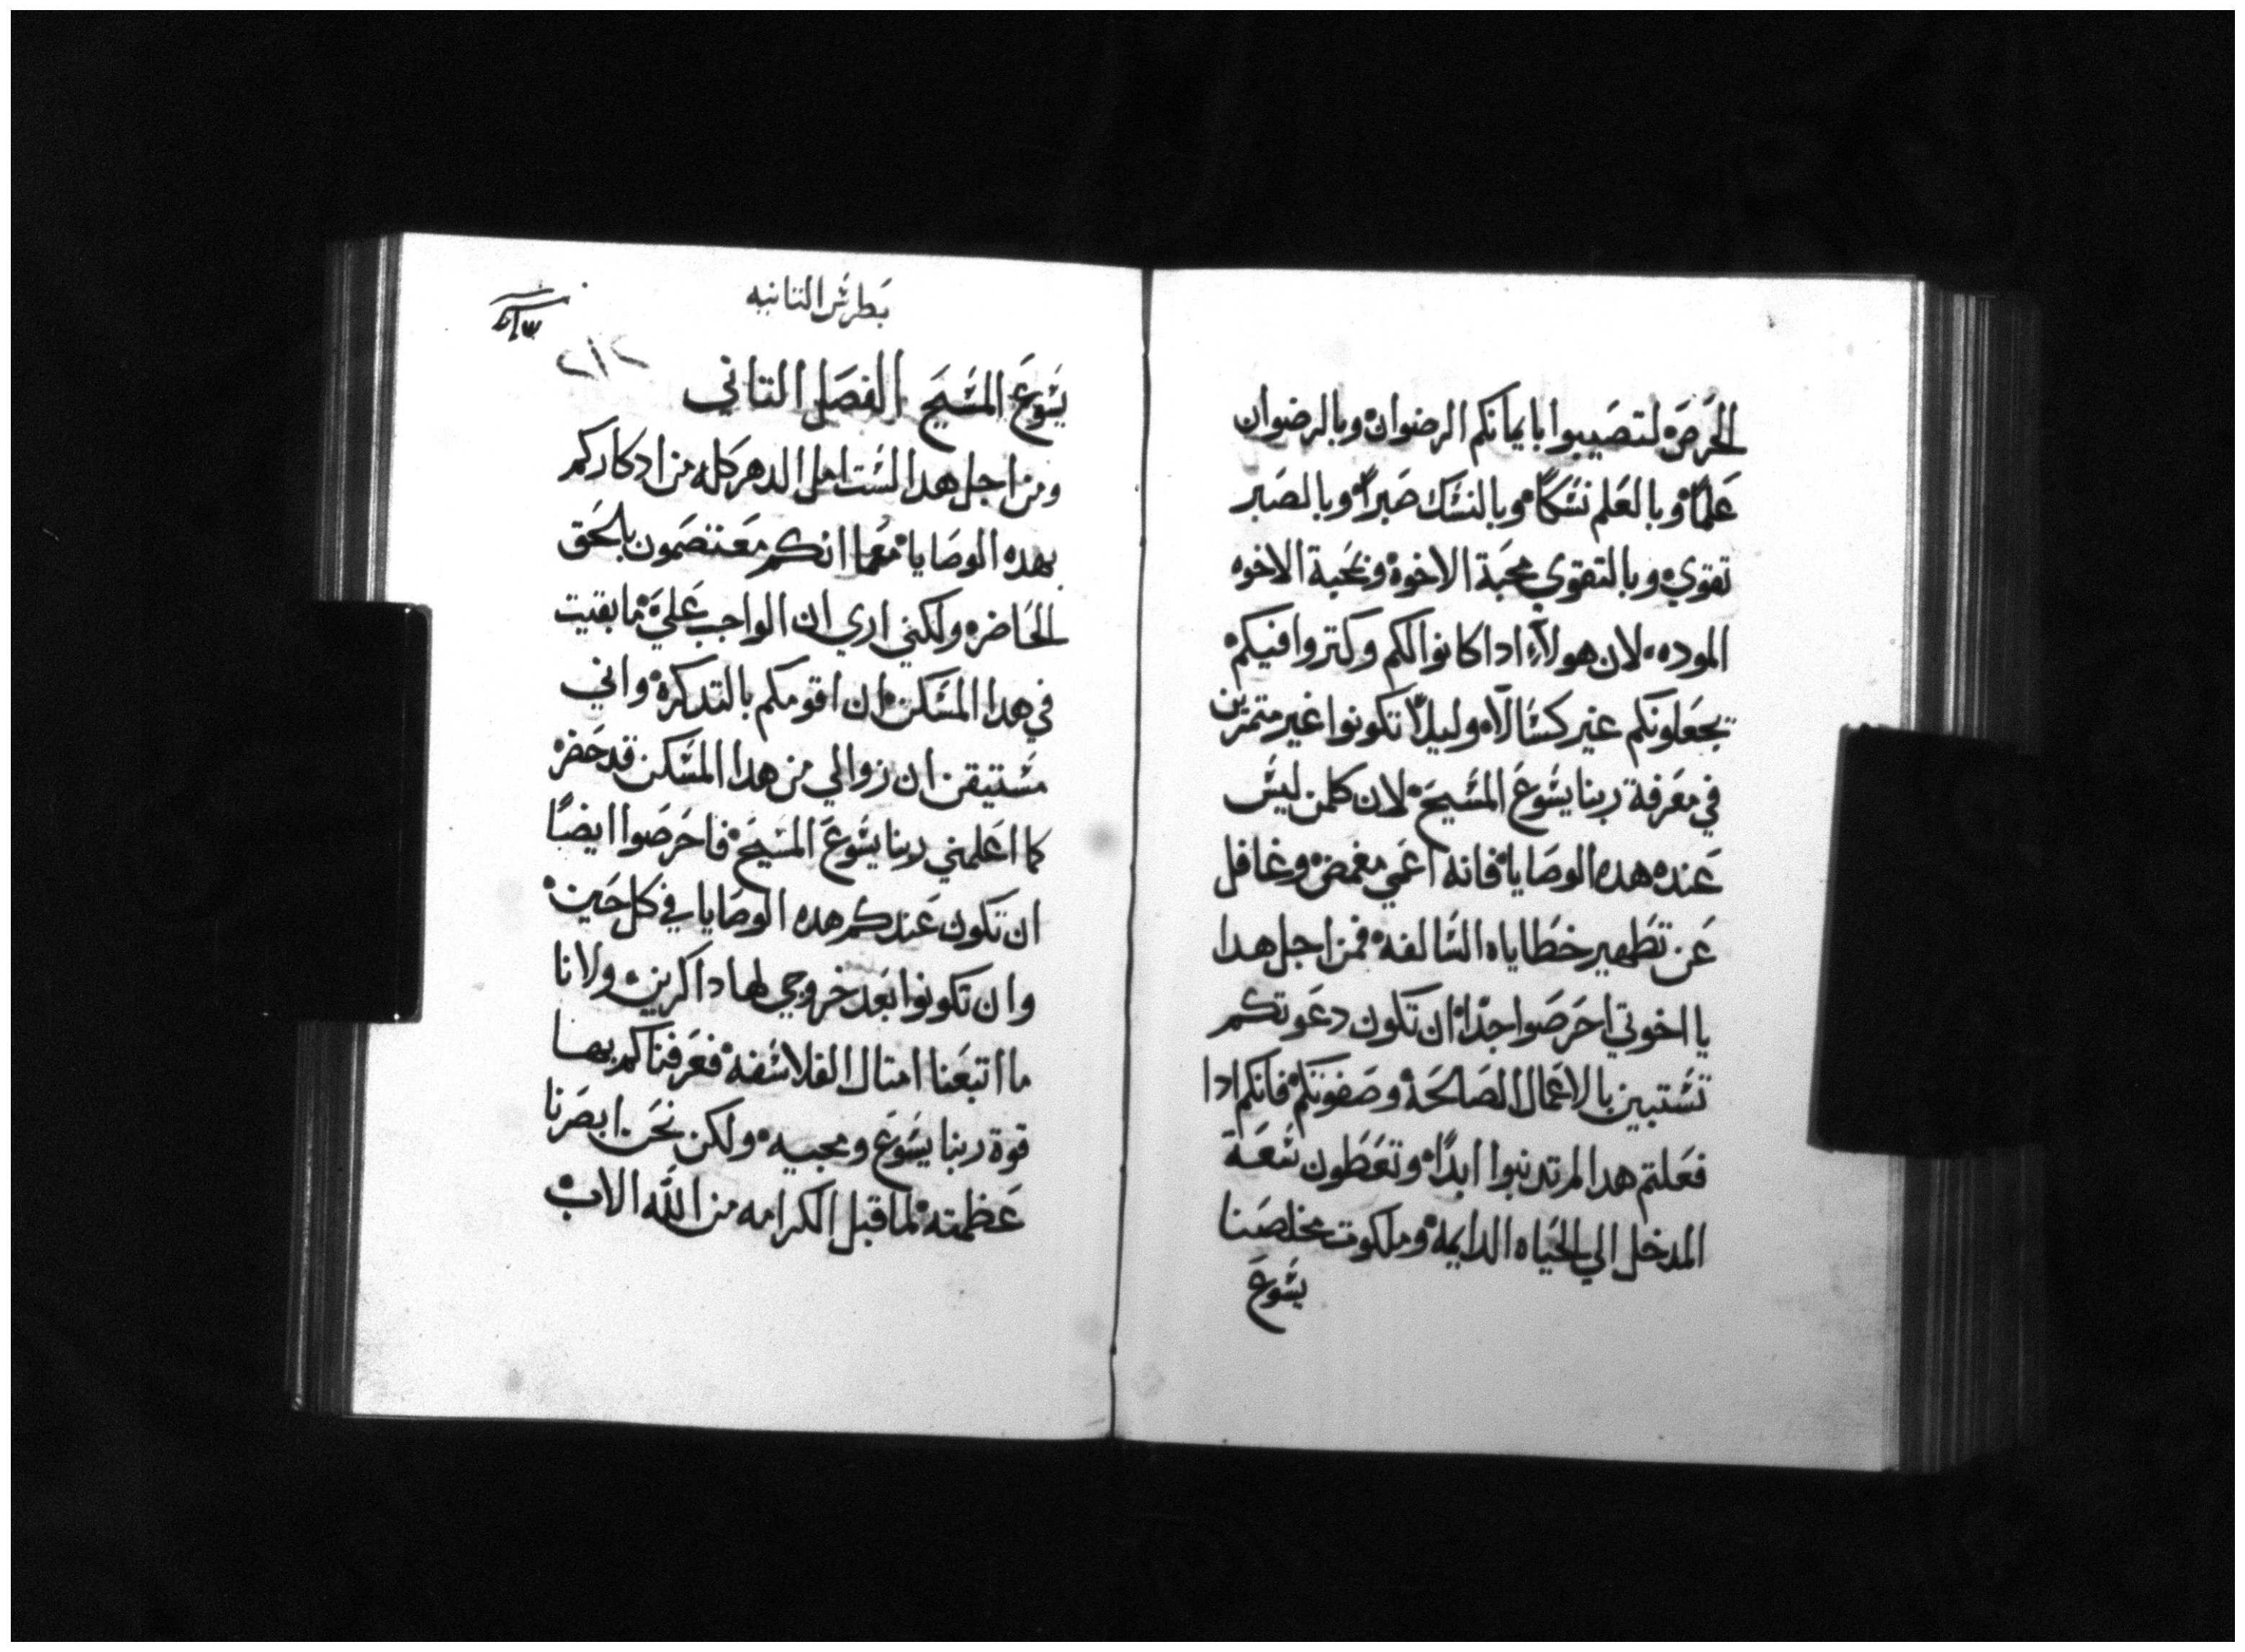 الحرص لتصيبوا بايمانكم الرضوان وبالرضوان
علماً وبالعلم نسكاً وبالنسك صبراً وبالصبر
تقوي وبالتقوي محبة الاخوة وبمحبة الاخوه
الموده لان هولاء ادا كانوا لكم وكتروا فيكم
تجعلونكم غير كسالا وليلا تكونوا غير متمرين
في معرفة ربنا يسوع المسيح لان كلمن ليس
عنده هده الوصايا فانه اعمي مغمض وغافل
عن تطهير خطاياه السالفه فمن اجل هدا
يا اخوتي احرصوا جداً ان تكون دعوتكم
تستبين بالاعمال الصالحة وصفوتكم فانكم ادا
فعلتم هدا لم تدنبوا ابداً وتعطون سعة
المدخل الي الحياه الدايمة وملكوت مخلصنا
يسوع
بطرس التانيه
٢١٢
يسوع المسيح الفصل التاني
ومن اجل هدا لست امل الدهر كله من ادكاركم
بهده الوصايا معما انكم معتصمون بالحق
الحاضره ولكني اري ان الواجب علي ما بقيت
في هدا المسكن ان اقومكم بالتدكرة واني
مستيقن ان زوالي من هدا المسكن قد حضر
كما اعلمني ربنا يسوع المسيح فاحرصوا ايضاً
ان تكون عندكم هده الوصايا في كل حين
وان تكونوا بعد خروجي لها داكرين ولانا
ما اتبعنا امتال الفلاسفه فعرفناكم بها
قوة ربنا يسوع ومجيه ولكن نحن ابصرنا
عظمته لما قبل الكرامه من الله الاب